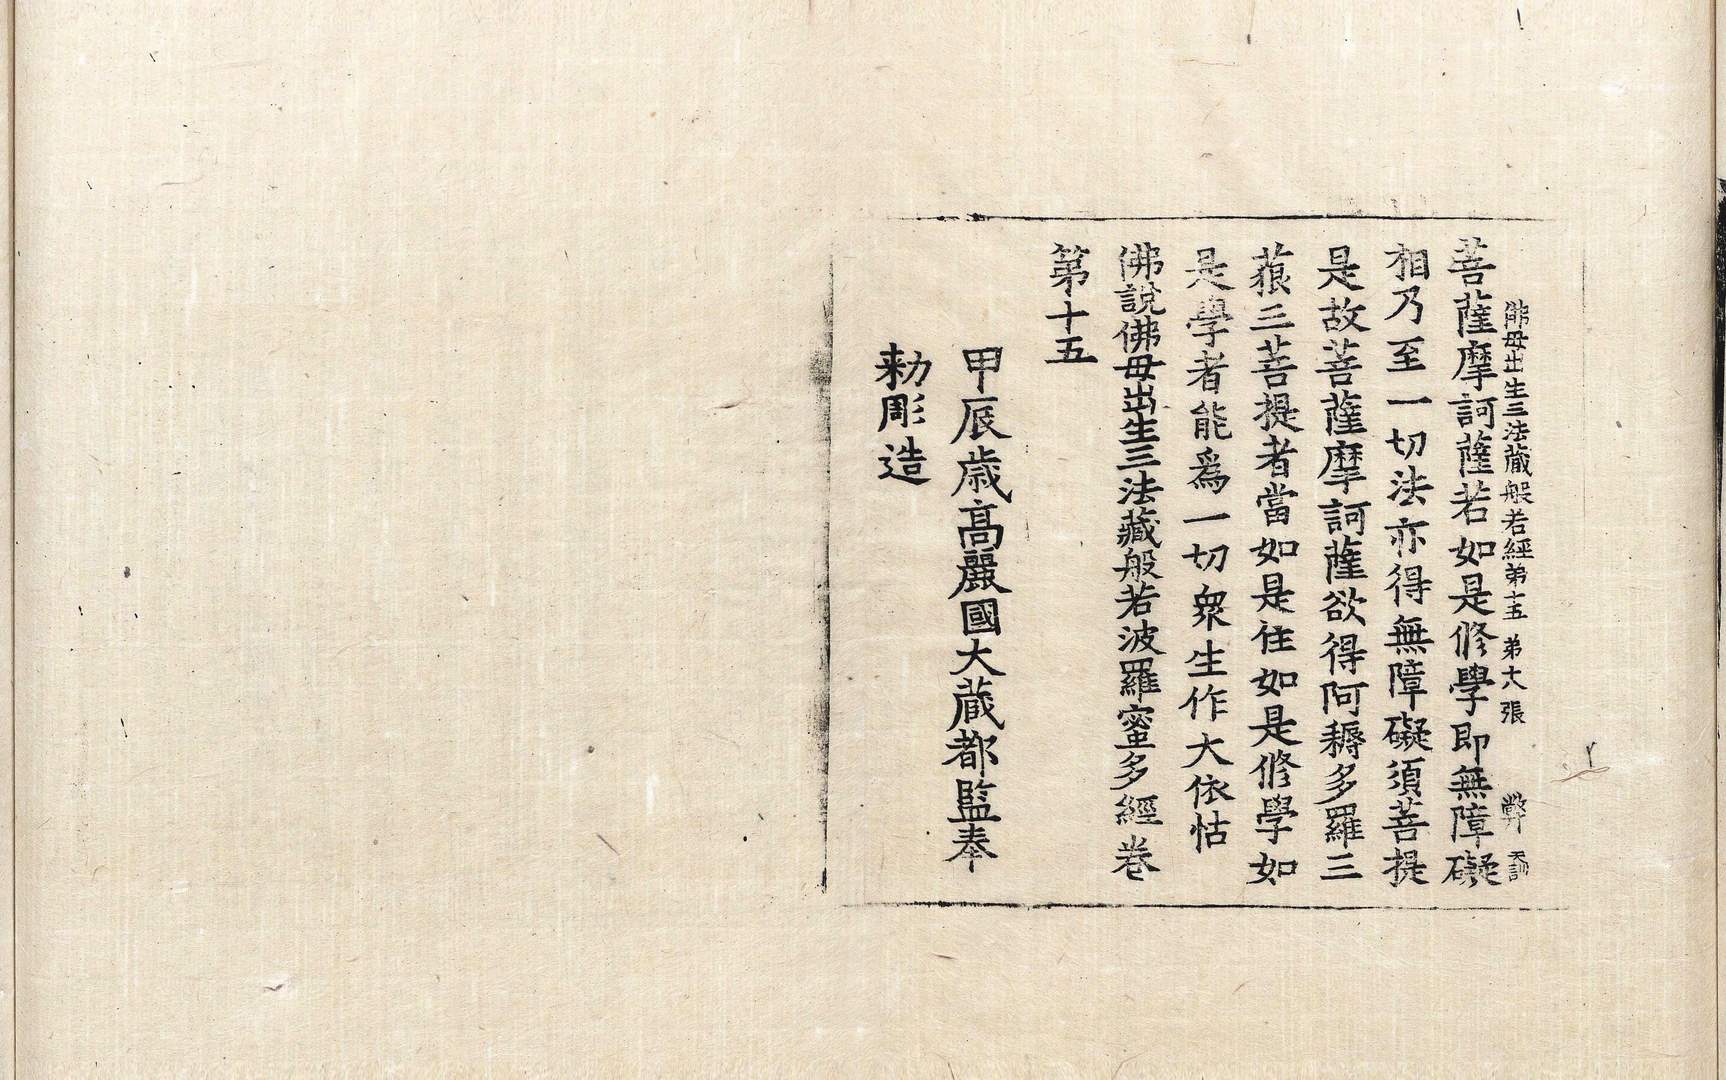 佛母出生三法藏般若經第十五 第十八張 弊
菩薩摩訶薩若如是修學即無障礙
相乃至一切法亦得無障礙須菩提
是故菩薩摩訶薩欲得阿耨多羅三
藐三菩提者當如是住如是修學如
是學者能爲一切衆生作大依怙
佛說佛毋出生三法藏般若波羅蜜多經卷
第十五
甲辰歲高麗國大藏都監奉
勑彫造